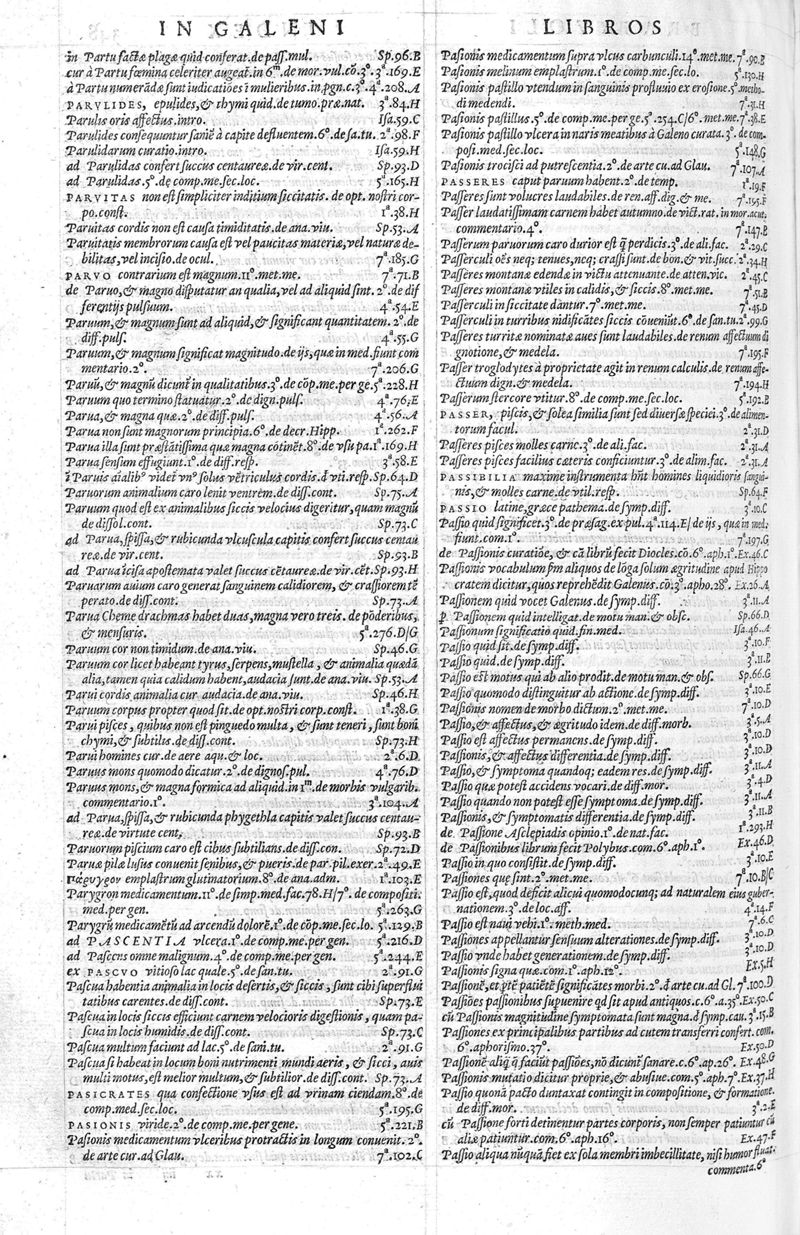 IN GALENI
in Partu factæ plagæ quid conferat.de pass.mul. Sp.96.B
cur à Partu fœmina celeriter augeat.in 6m.de mor.vul.cō.3°. 3a.169.E
à Partu numerādæ sunt iudicatiōes ī mulieribus.in pgn.c.3°.4a.208.A
PARVLIDES, epulides,& thymi quid.de tumo.præ.nat. 3a.84.H
Parulis oris affectus.intro. Isa.59.C
Parulides consequuntur saniē à capite defluentem.6°.de sa.tu. 2a.98.F
Parulidarum curatio.intro. Isa.59.H
ad Parulidas confert succus centaureæ.de vir.cent. Sp.93.D
ad Parulidas.5°.de comp.me.sec.loc. 5a.165.H
PARVITAS non est simpliciter inditium siccitatis.de opt.nostri cor-
po.const. 1a.38.H
Paruitas cordis non est causa timiditatis.de ana.viu. Sp.53.A
Paruitatis membrorum causa est vel paucitas materiæ,vel naturæ de-
bilitas,vel incisio.de ocul. 7a.185.G
PARVO contrarium est magnum.11°.met.me. 7a.71.B
de Paruo,& magno disputatur an qualia,vel ad aliquid sint.2°.de dif
ferentijs pulsuum. 4a.54.E
Paruum,& magnum sunt ad aliquid,& significant quantitatem.2°.de
diff.puls. 4a.55.G
Paruum,& magnum significat magnitudo.de ijs,quæ in med.fiunt com
mentario.2°. 7a.206.G
Paruū,& magnū dicunt in qualitatibus.3°.de cōp.me.per ge.5a.228.H
Paruum quo termino statuatur.2°.de dign.puls. 4a.76.E
Parua,& magna quæ.2°.de diff.puls. 4a.56.A
Parua non sunt magnorum principia.6°.de decr.Hipp. 1a.262.F
Parua illa sunt præstātissima quæ magna cōtinēt.8°.de vsu pa.1a.169.H
Parua sensum effugiunt.1°.de diff.resp. 3a.58.E
ī Paruis aīalib° videt vn° solus vētriculus cordis.d vti.resp.Sp.64.D
Paruorum animalium caro lenit ventrem.de diss.cont. Sp.75.A
Paruum quod est ex animalibus siccis velocius digeritur,quam magnū
de dissol.cont. Sp.73.C
ad Parua,spissa,& rubicunda vlcuscula capitis confert succus centau
reæ.de vir.cent. Sp.93.B
ad Parua īcisa apostemata valet succus cētaureæ.de vir.cēt.Sp.93.H
Paruarum auium caro generat sanguinem calidiorem, & crassiorem tē
perato.de diss.cont. Sp.73.A
Parua Cheme drachmas habet duas,magna vero treis. de pōderibus,
& mensuris. 5a.276.D/G
Paruum cor non timidum.de ana.viu. Sp.46.G
Paruum cor licet habeant tyrus,serpens,mustella, & animalia quædā
alia,tamen quia calidum habent,audacia sunt.de ana.viu. Sp.53.A
Parui cordis animalia cur audacia.de ana.viu. Sp.46.H
Paruum corpus propter quod sit.de opt.nostri corp.const. 1a.38.G
Parui pisces, quibus non est pinguedo multa, & sunt teneri, sunt boni
chymi,& subtilis.de diss.cont. Sp.73.H
Parui homines cur.de aere aqu.& loc. 2a.6.D
Paruus mons quomodo dicatur.2°.de dignos.pul. 4a.76.D
Paruus mons,& magna formica ad aliquid.in 1m.de morbis vulgarib.
commentario.1°. 3a.104.A
ad Parua,spissa,& rubicunda phygethla capitis valet succus centau-
reæ.de virtute cent. Sp.93.B
Paruorum piscium caro est cibus subtilians.de diss.con. Sp.72.D
Paruæ pilæ lusus conuenit senibus,& pueris.de par.pil.exer.2a.49.E
πάρυγρον emplastrum glutinatorium.8°.de ana.adm. 1a.103.E
Parygron medicamentum.11°.de simp.med.fac.78.H/7°. de compositi.
med.per gen. 5a.263.G
Parygrū medicamētū ad arcendū dolorē.1°.de cōp.me.sec.lo. 5a.129.B
ad PASCENTIA vlcera.1°.de comp.me.per gen. 5a.216.D
ad Pascens omne malignum.4°.de comp.me.per gen. 5a.244.E
ex PASCVO vitioso lac quale.5°.de san.tu. 2a.91.G
Pascua habentia animalia in locis desertis,& siccis,sunt cibi superflui
tatibus carentes.de diss.cont. Sp.73.E
Pascua in locis siccis efficiunt carnem velocioris digestionis, quam pa-
scua in locis humidis.de diss.cont. Sp.73.C
Pascua multum faciunt ad lac.5°.de sani.tu. 2a.91.G
Pascua si habeat in locum boni nutrimenti mundi aeris, & sicci, auis
multi motus,est melior multum,& subtilior.de diss.cont. Sp.73.A
PASICRATES qua confectione vsus est ad vrinam ciendam.8°.de
comp.med.sec.loc. 5a.195.G
PASIONIS viride.2°.de comp.me.per gene. 5a.221.B
Pasionis medicamentum vlceribus protractis in longum conuenit.2°.
de arte cur.ad Glau. 7a.102.C
LIBROS
Pasionis medicamentum supra vlcus carbunculi.14°.met.me.7a.90.B
Pasionis melinum emplastrum.1°.de comp.me.sec.lo. 5a.130.H
Pasionis pastillo vtendum in sanguinis profluuio ex erosione.5°.metho-
di medendi. 7a.31.H
Pasionis pastillus.5°.de comp.me.per ge.5a.254.C/6°.met.me.7a.38.E
Pasionis pastillo vlcera in naris meatibus à Galeno curata.3°.de com-
posi.med.sec.loc. 5a.148.G
Pasionis trocisci ad putrescentia.2°.de arte cu.ad Glau. 7a.107.A
PASSERES caput paruum habent.2°.de temp. 1a.19.F
Passeres sunt volucres laudabiles.de ren.aff.dig.& me. 7a.195.F
Passer laudatissimam carnem habet autumno.de vict.rat.in mor.acut.
commentario.4°. 7a.147.B
Passerum paruorum caro durior est q̄ perdicis.3°.de ali.fac. 2a.29.C
Passerculi oēs neq; tenues,neq; crassi sunt.de bon.& vit.succ. 2a.34.H
Passeres montanæ edendæ in victu attenuante.de atten.vic. 2a.45.C
Passeres montanæ vtiles in calidis,& siccis.8°.met.me. 7a.51.B
Passerculi in siccitate dantur.7°.met.me. 7a.45.D
Passerculi in turribus nidificātes siccis cōueniūt.6°.de san.tu.2a.99.G
Passeres turritæ nominatæ aues sunt laudabiles.de renum affectuum di
gnotione,& medela. 7a.195.F
Passer troglodytes à proprietate agit in renum calculis.de renum affe-
ctuum dign.& medela. 7a.194.H
Passerum stercore vtitur.8°.de comp.me.sec.loc. 5a.192.B
PASSER, piscis,& solea similia sunt sed diuersæ speciei.3°.de alimen-
torum facul. 2a.31.D
Passeres pisces molles carne.3°.de ali.fac. 2a.31.A
Passeres pisces facilius cæteris conficiuntur.3°.de alim.fac. 2a.31.A
PASSIBILIA maxime instrumenta hn̄t homines liquidioris sangui-
nis,& molles carne.de vtil.resp. Sp.64.F
PASSIO latine,græce pathema.de symp.diff. 3a.10.C
Passio quid significet.3°.de præsag.ex pul.4a.114.E/de ijs, quæ in med.
fiunt.com.1°. 7a.197.G
de Passionis curatiōe, & cā librū fecit Diocles.cō.6°.aph.1°.Ex.46.C
Passionis vocabulum pm̄ aliquos de lōga solum ægritudine apud Hippo
cratem dicitur,quos reprehēdit Galenus.cō.3°.apho.28°. Ex.26.A
Passionem quid vocet Galenus.de symp.diff. 3a.11.A
p. Passionem quid intelligat.de motu man.& obsc. Sp.66.D
Passionum significatio quid.fin.med. Isa.46.A
Passio quid sit.de symp.diff. 3a.10.F
Passio quid.de symp.diff. 3a.11.B
Passio est motus qui ab alio prodit.de motu man.& obs. Sp.66.G
Passio quomodo distinguitur ab actione.de symp.diff. 3a.10.E
Passio nomen de morbo dictum.2°.met.me. 7a.10.D
Passio,& affectus,& ægritudo idem.de diff.morb. 3a.5.A
Passio est affectus permanens.de symp.diff. 3a.10.D
Passionis,& affectus differentia.de symp.diff. 3a.10.D
Passio,& symptoma quandoq; eadem res.de symp.diff. 3a.11.A
Passio quæ potest accidens vocari.de diff.mor. 3a.4.D
Passio quando non potest esse symptoma.de symp.diff. 3a.11.A
Passionis,& symptomatis differentia.de symp.diff. 3a.11.B
de Passione Asclepiadis opinio.1°.de nat.fac. 1a.293.H
de Passionibus librum fecit Polybus.com.6°.aph.1°. Ex.46.D
Passio in quo consistit.de symp.diff. 3a.10.E
Passiones que sint.2°.met.me. 7a.10.B/C
Passio est,quod deficit alicui quomodocunq; ad naturalem eius guber-
nationem.3°.de loc.aff. 4a.14.F
Passio est nauī vehi.1°.meth.med. 7a.6.C
Passiones appellantur sensuum alterationes.de symp.diff. 3a.10.D
Passio vnde habet generationem.de symp.diff. 3a.10.D
Passionis signa quæ.com.1°.aph.12°. Ex.5.H
Passionē,et ptē patiētē significātes morbi.2°.d arte cu.ad Gl.7a.100.D
Passiōes passionibus supuenire qd sit apud antiquos.c.6°.a.35°.Ex.50.C
cū Passionis magnitudine symptomata sunt magna.d symp.cau. 3a.15.B
Passiones ex principalibus partibus ad cutem transferri confert.com.
6°.aphorismo.37°. Ex.50.D
Passionē aliq̄ q̄ faciūt passiōes,nō dicunt sanare.c.6°.ap.26°. Ex.48.G
Passionis mutatio dicitur proprie,& abusiue.com.5°.aph.7°.Ex.37.H
Passio quonā pacto duntaxat contingit in compositione, & formatione.
de diff.mor. 3a.2.E
cū Passione forti detinentur partes corporis,non semper patiuntur cū
aliæ patiuntur.com.6°.aph.16°. Ex.47.F
Passio aliqua nūquā fiet ex sola membri imbecillitate, nisi humor fluat.
commenta.6°